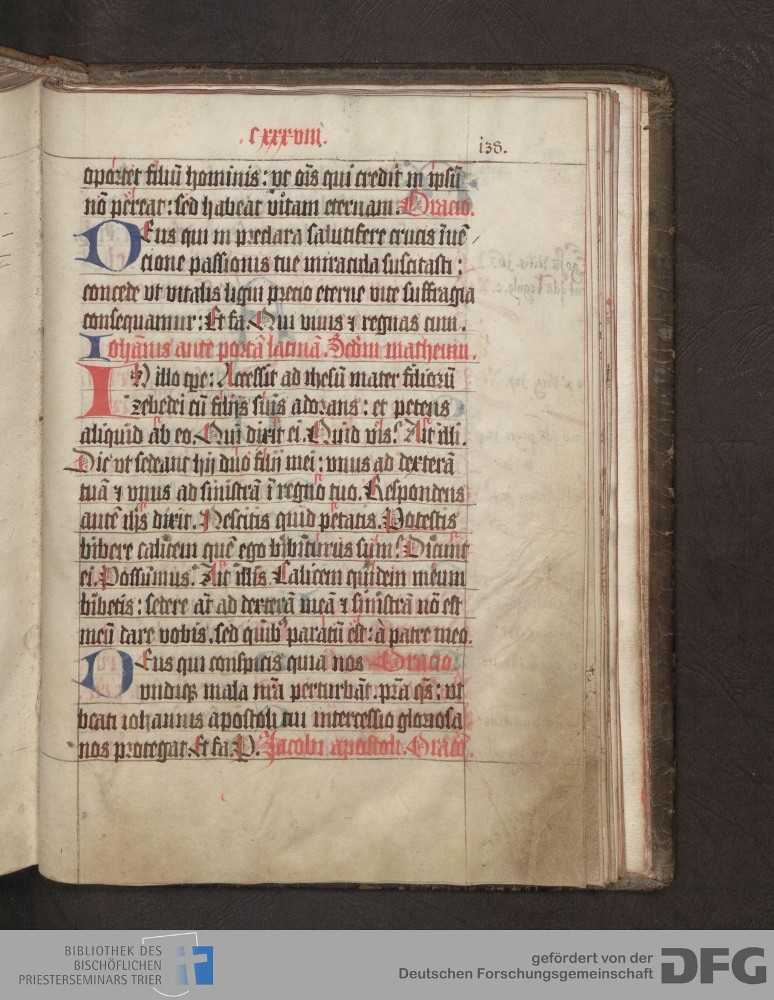 .cxxxviii.
138.
oportet filiū hominis: vt oīs qui credit in ipsū
nō pereat: sed habeat vitam eternam. Oracio.
DEus qui in preclara salutifere crucis īuē
cione passionis tue miracula suscitasti:
concede vt vitalis ligni precio eterne vite suffragia
consequamur: Et fa. Qui viuis ⁊ regnas cum.
Iohānis ante portā latinā. Scdm matheum.
IN illo tpe: Accessit ad ihesū mater filiorū
zebedei cū filijs suis adorans: et petens
aliquid ab eo. Qui dixit ei. Quid vis? Ait illi.
Dic vt sedeant hij duo filij mei: vnus ad dexterā
tuā ⁊ vnus ad sinistrā ī regno tuo. Respondens
autē ihs dixit. Nescitis quid petatis. Potestis
bibere calicem quē ego bibiturus sum? Dicunt
ei. Possumus. Ait illis. Calicem quidem meum
bibetis: sedere at̄ ad dexterā meā ⁊ sinistrā nō est
meū dare vobis, sed quibꝰ paratū est: à patre meo.
DEus qui conspicis quia nos Oracio.
vndiqꝫ mala nr̄a perturbāt. pr̄a qs̄: vt
beati iohannis apostoli tui intercessio gloriosa
nos protegat. Et fa. P. Jacobi apostoli. Oracō.
BIBLIOTHEK DES
BISCHÖFLICHEN
PRIESTERSEMINARS TRIER
gefördert von der
Deutschen Forschungsgemeinschaft
DFG